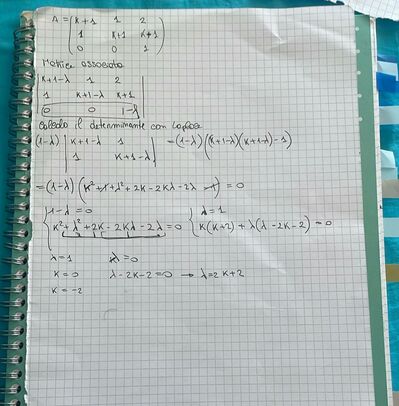 A = (k+1 1 2
1 k+1 k+1
0 0 1)
Matrice associata
|k+1-λ 1 2|
|1 k+1-λ k+1|
|0 0 1-λ|
Calcolo il determinante con Laplace
(1-λ) |k+1-λ 1| = (1-λ)((k+1-λ)(k+1-λ)-1)
|1 k+1-λ|
= (1-λ)(k²+1+λ²+2k-2kλ-2λ-1) = 0
{1-λ=0 {λ=1
k²+λ²+2k-2kλ-2λ=0 k(k+2)+λ(λ-2k-2)=0
λ=1 λ=0
k=0 λ-2k-2=0 → λ=2k+2
k=-2